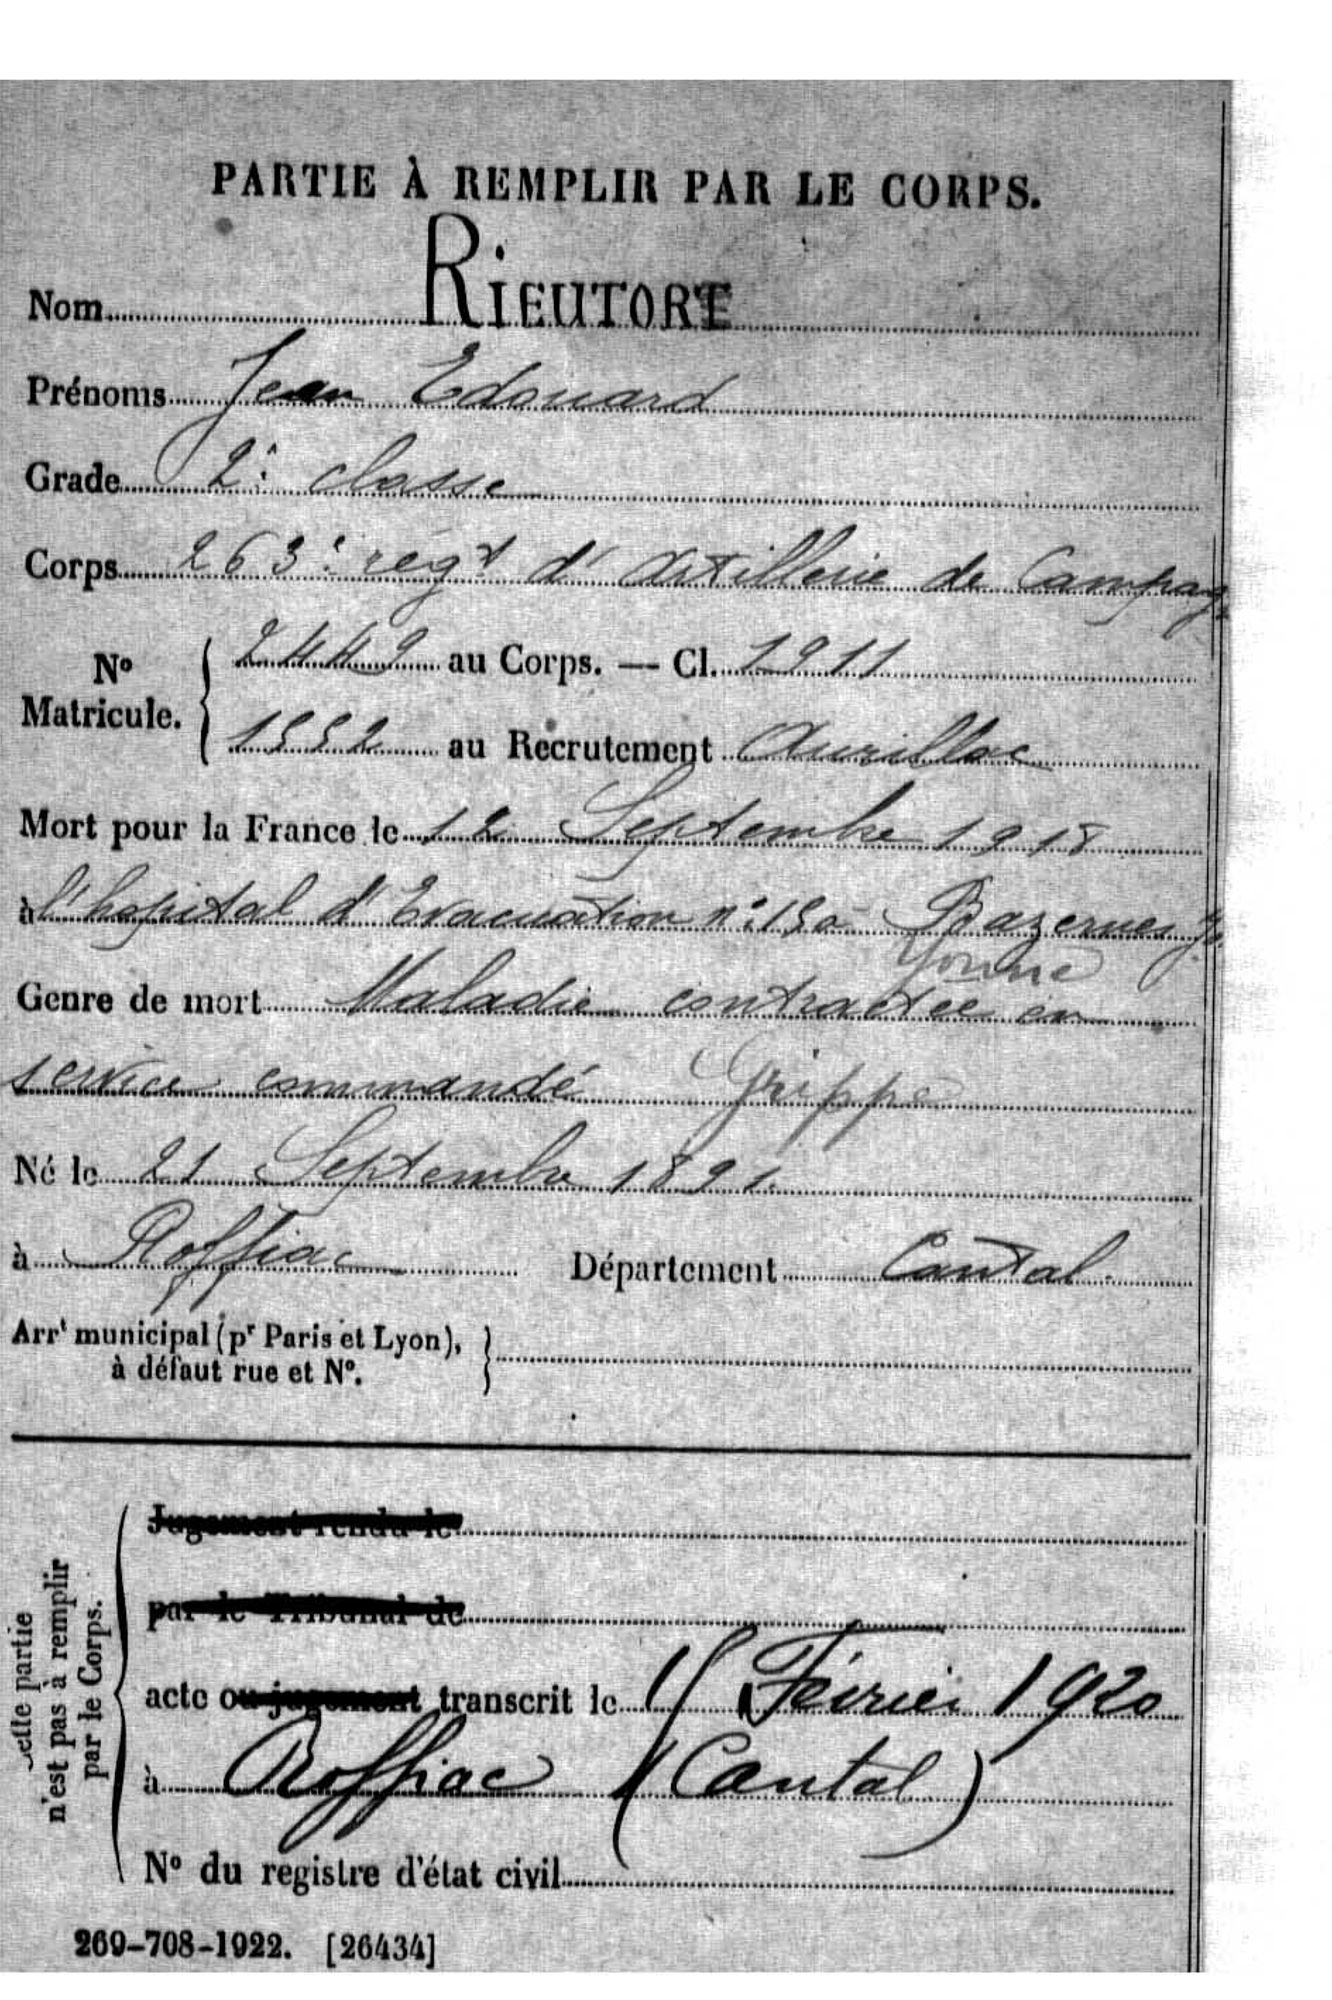 PARTIE À REMPLIR PAR LE CORPS.
Nom RIEUTORT
Prénoms Jean Edouard
Grade 2e classe
Corps 263e régt d'Artillerie de Campag
No Matricule. 2449 au Corps. — Cl. 1911
1552 au Recrutement Aurillac
Mort pour la France le 12 Septembre 1918
à l'hopital d'Evacuation n° 150 Bazernes
Yonne
Genre de mort Maladie contractée en
service commandé Grippe
Né le 21 Septembre 1891
à Roffiac Département Cantal
Arrt municipal (pr Paris et Lyon),
à défaut rue et No.
Cette partie
n'est pas à remplir
par le Corps.
Jugement rendu le
par le Tribunal de
acte ou jugement transcrit le 15 Février 1920
à Roffiac (Cantal)
No du registre d'état civil
269-708-1922. [26434]